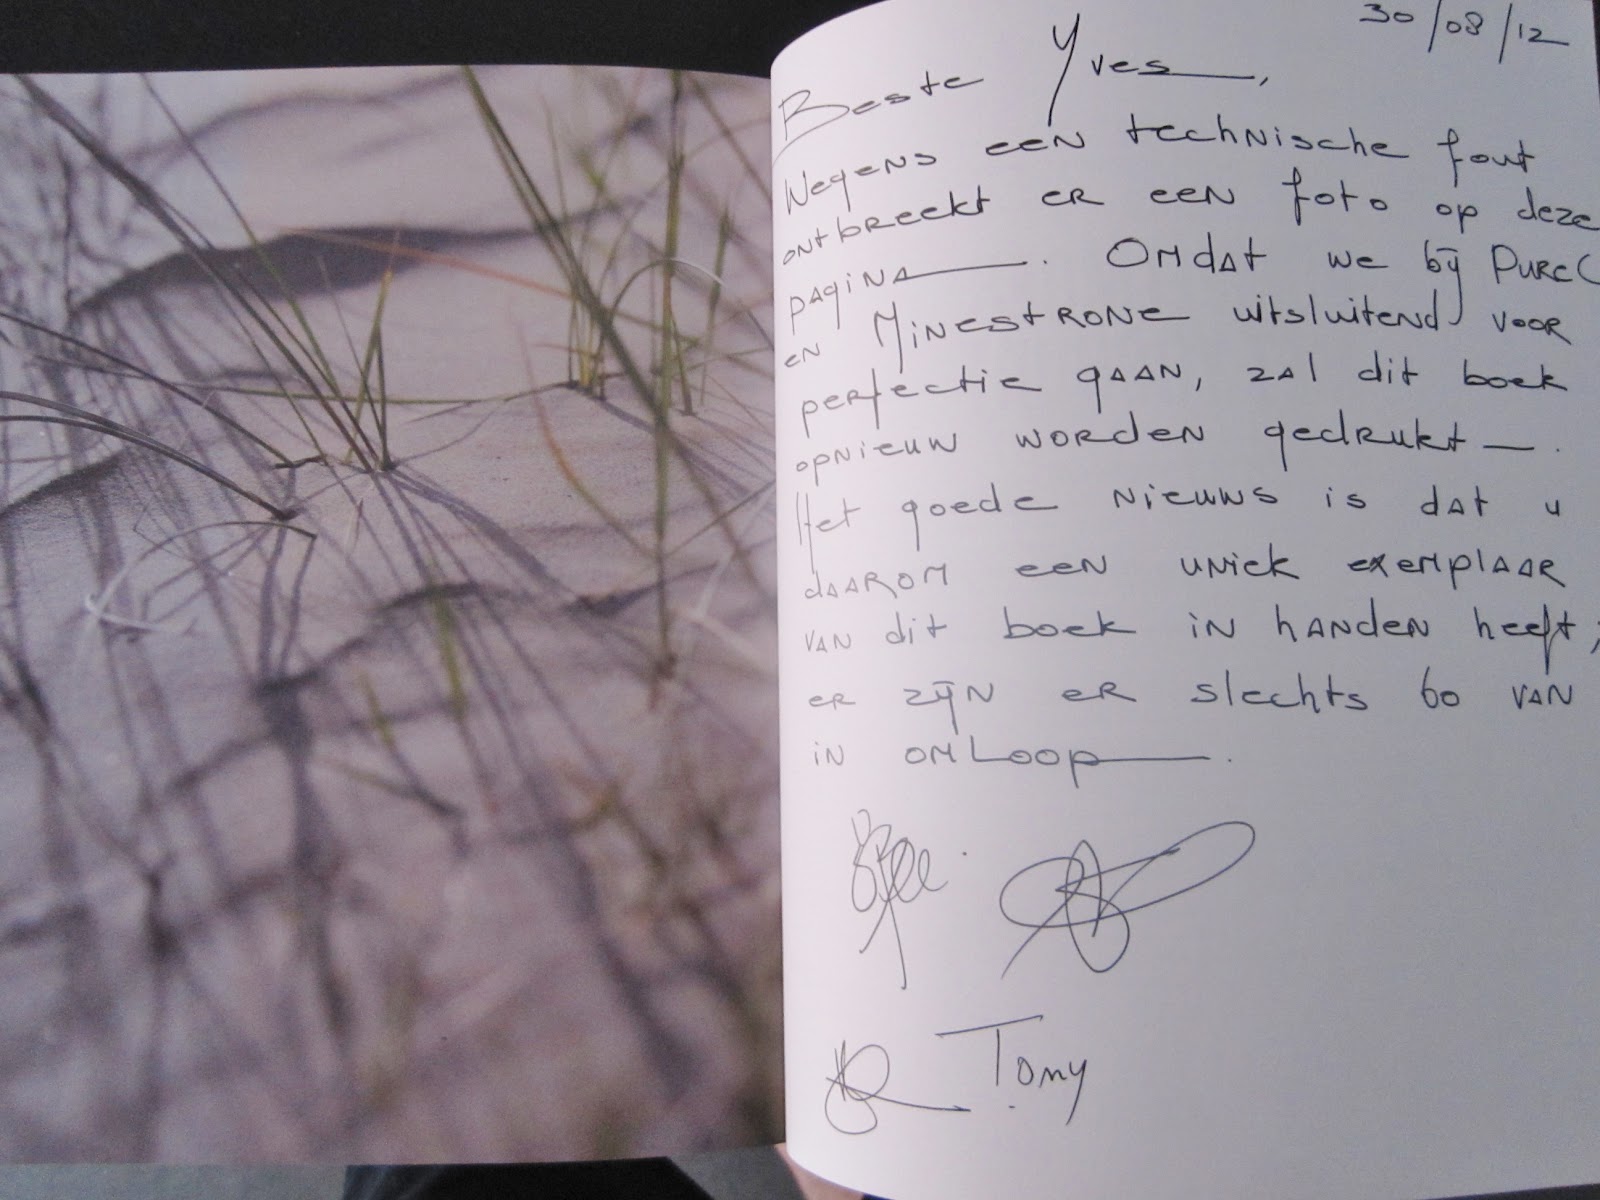 30/08/12
Beste Yves,
Wegens een technische fout
ontbreekt er een foto op deze
pagina. Omdat we bij PureC
en Minestrone uitsluitend voor
perfectie gaan, zal dit boek
opnieuw worden gedrukt.
Het goede nieuws is dat u
daarom een uniek exemplaar
van dit boek in handen heeft;
er zijn er slechts 60 van
in omloop.
Tomy